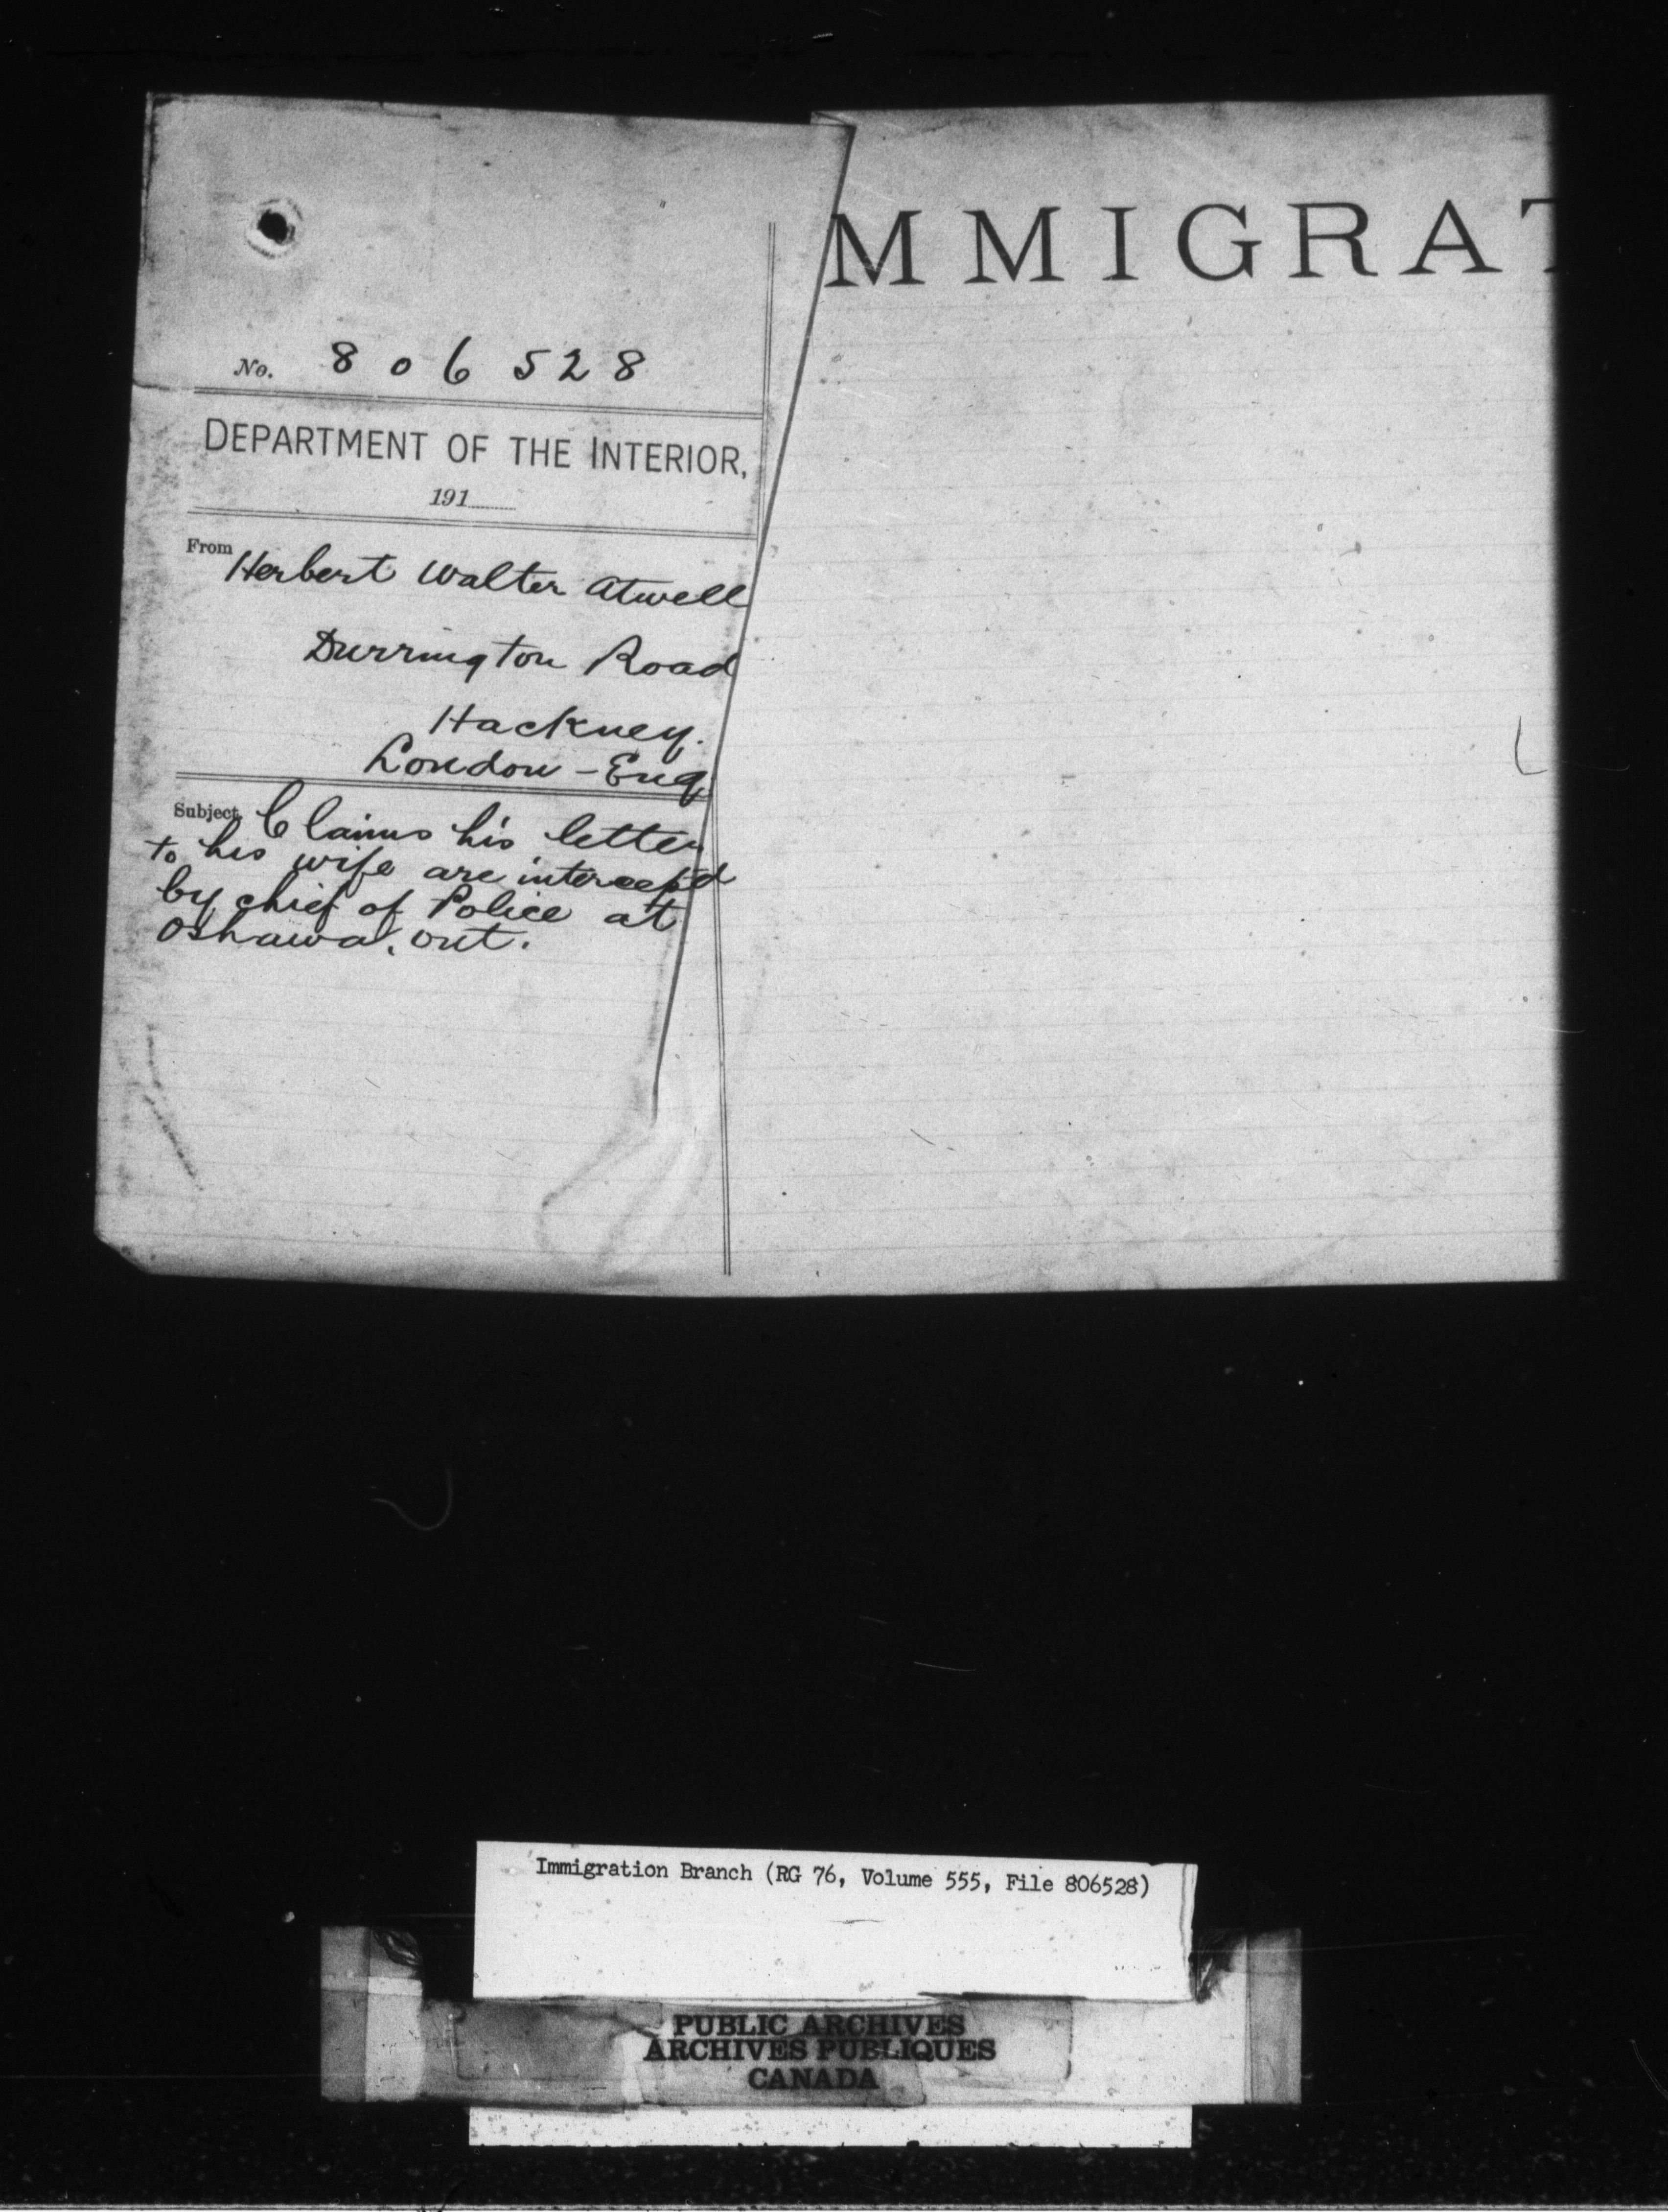 MMIGRAT
No. 806528
DEPARTMENT OF THE INTERIOR,
191
From Herbert Walter Atwell
Durrington Road
Hackney.
London - Eng
Subject, Claims his letter
to his wife are intercept'd
by chief of Police at
Oshawa, Ont.
Immigration Branch (RG 76, Volume 555, File 806528)
PUBLIC ARCHIVES
ARCHIVES PUBLIQUES
CANADA